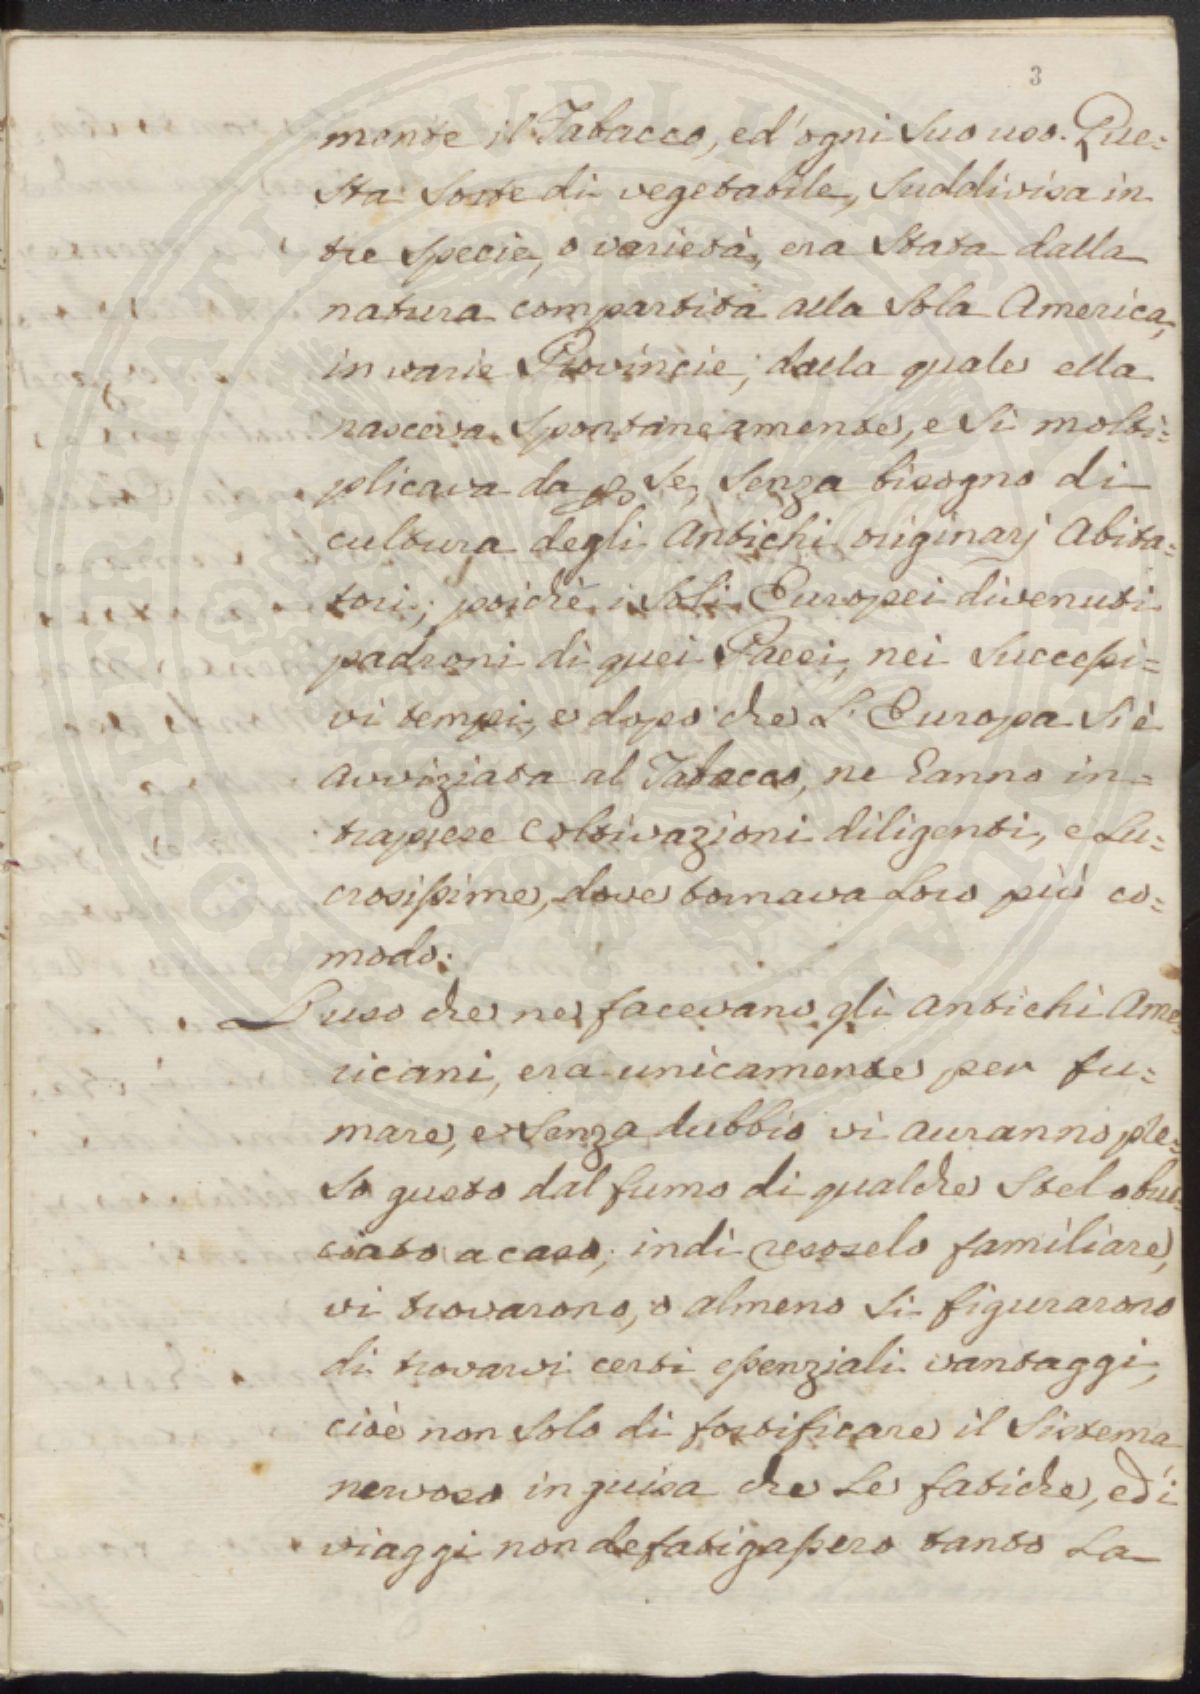 3
mente il Tabacco, ed'ogni suo uso. Que=
sta sorte di vegetabile, suddivisa in
tre specie, o varietà, era stata dalla
natura compartita alla sola America,
in varie Provincie; dalla quale ella
nasceva spontaneamente, e si molti=
plicava da per se, senza bisogno di
cultura degli Antichi originarj Abita=
tori; poichè i soli Europei divenuti
padroni di quei Paesi, nei successi=
vi tempi, e dopo che L'Europa si è
avviziata al Tabacco, ne hanno in=
traprese Coltivazioni diligenti, e Lu=
crosissime, dove tornava Loro più co=
modo.
L'uso che ne facevano gli antichi Ame=
ricani, era unicamente per fu=
mare, e senza dubbio vi auranno pre=
so gusto dal fumo di qualche stelo bru=
ciato a caso; indi resoselo familiare,
vi trovarono, o almeno si figurarono
di trovarvi certi essenziali vantaggi,
cioè non solo di fortificare il sistema
nervoso in guisa che Le fatiche, ed i
viaggi non defatigassero tanto La